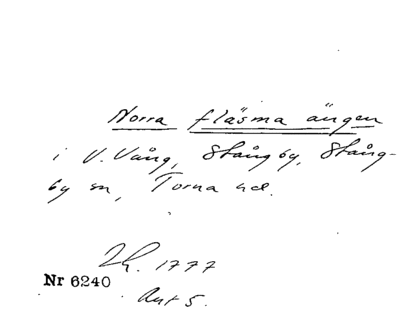 Norra fläsma ängen
i V. Vång, Stångby, Stång-
by sn, Torna hd.
1777
Nr 6240
Akt 5.